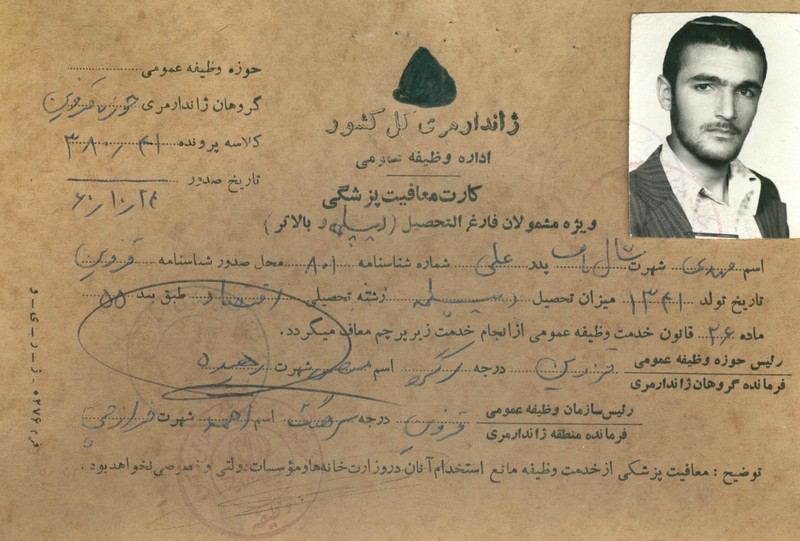 ژاندارمری کل کشور
اداره وظیفه عمومی
کارت معافیت پزشکی
ویژه مشمولان فارغ التحصیل (دیپلم و بالاتر)
حوزه وظیفه عمومی
گروهان ژاندارمری حوزه قزوین
کلاسه پرونده ۴۱/۳۸۰
تاریخ صدور
۶۰/۱۰/۲۴
اسم مهدی شهرت شال باف پدر علی شماره شناسنامه ۸۰۱ محل صدور شناسنامه قزوین
تاریخ تولد ۱۳۴۱ میزان تحصیل دیپلمه رشته تحصیلی اقتصاد طبق بند ۵۵
ماده ۲۶ قانون خدمت وظیفه عمومی از انجام خدمت زیر پرچم معاف میگردد.
رئیس حوزه وظیفه عمومی
فرمانده گروهان ژاندارمری
قزوین درجه اسم شهرت
رئیس سازمان وظیفه عمومی
فرمانده منطقه ژاندارمری
قزوین درجه سرهنگ اسم احمد شهرت
توضیح : معافیت پزشکی از خدمت وظیفه مانع استخدام آنان در وزارت خانه ها و مؤسسات دولتی و خصوصی نخواهد بود .